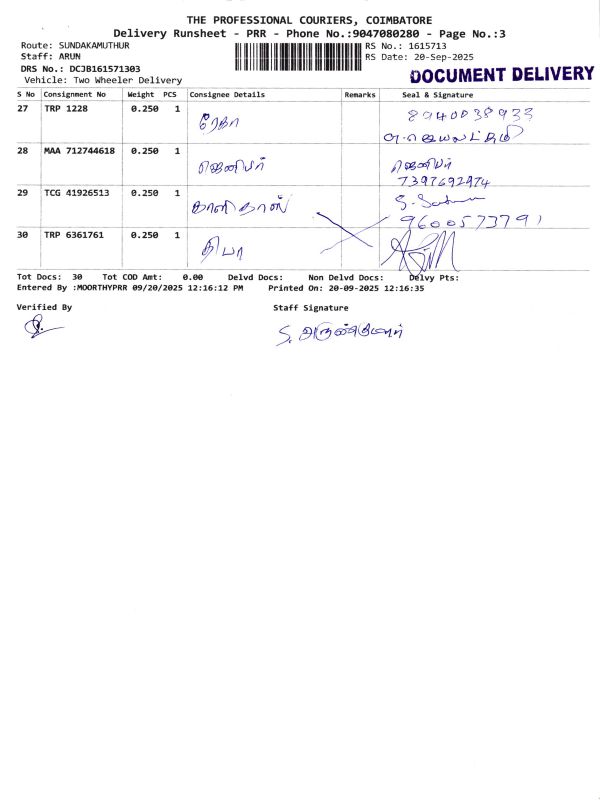 THE PROFESSIONAL COURIERS, COIMBATORE
Delivery Runsheet - PRR - Phone No.:9047080280 - Page No.:3
Route: SUNDAKAMUTHUR
RS No.: 1615713
Staff: ARUN
RS Date: 20-Sep-2025
DRS No.: DCJB161571303
DOCUMENT DELIVERY
Vehicle: Two Wheeler Delivery
S No Consignment No Weight PCS Consignee Details Remarks Seal & Signature
27 TRP 1228 0.250 1 ரேகா 8940038933
28 MAA 712744618 0.250 1 ஜெனிபர் ஜெனிபர்
7397692974
29 TCG 41926513 0.250 1 காளிதாஸ்
9600573791
30 TRP 6361761 0.250 1 தீபா
Tot Docs: 30 Tot COD Amt: 0.00 Delvd Docs: Non Delvd Docs: Delvy Pts:
Entered By :MOORTHYPRR 09/20/2025 12:16:12 PM Printed On: 20-09-2025 12:16:35
Verified By Staff Signature
S. அருண்குமார்